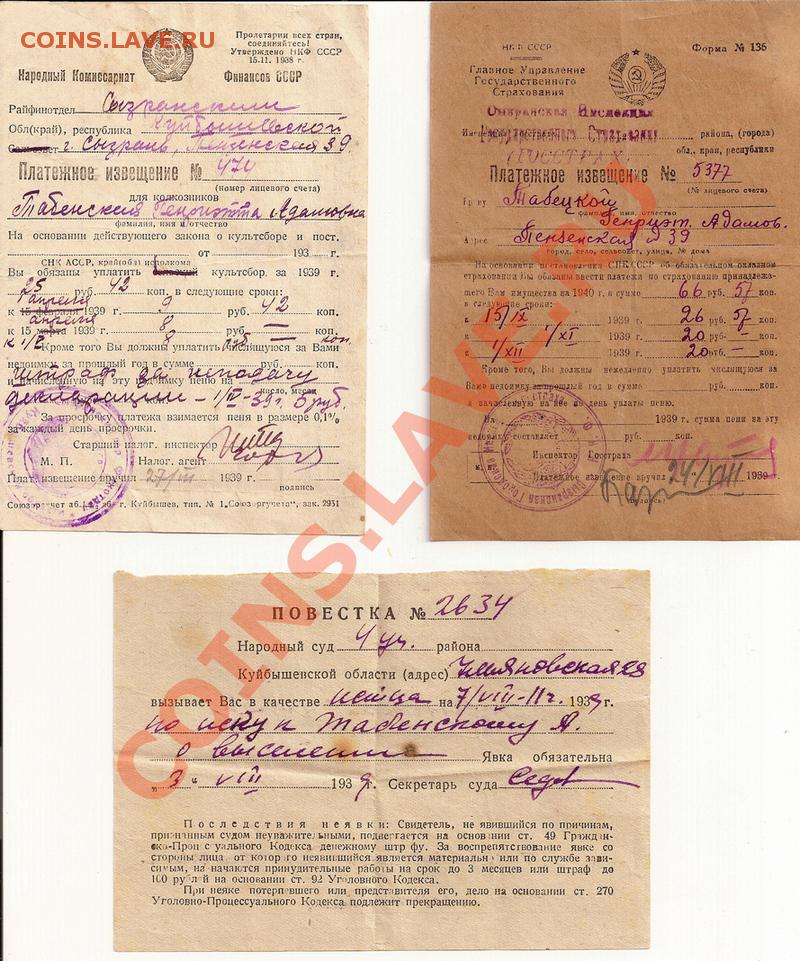 COINS.LAVE.RU
Пролетарии всех стран,
соединяйтесь!
Утверждено НКФ СССР
15.11. 1938 г.
Народный Комиссариат Финансов СССР
Райфинотдел Сызранский
Обл(край), республика Куйбышевской
г. Сызрань, 39
Платежное извещение № 470
(номер лицевого счета)
для колхозников
Табенская Генриэтта Адамовна
фамилия, имя и отчество
На основании действующего закона о культсборе и пост.
от 193 г.
СНК АССР, край(обл) исполкома
Вы обязаны уплатить культсбор. за 1939 г.
25 руб. 42 коп. в следующие сроки:
апреля
к 15 февраля 1939 г. 9 руб. 42 коп.
апреля
к 15 марта 1939 г. 8 руб. — коп.
8 руб. — коп
Кроме того Вы должны уплатить числящуюся за Вами
недоимку за прошлый год в сумме
штраф за неподачу
и начисленную на эту недоимку пеню на число, месяц
декларации – 39 г. 0 руб.
За просрочку платежа взимается пеня в размере 0,1%
за каждый день просрочки.
Старший налог. инспектор
М. П. Налог. агент
Плат. извещение вручил 27/III 1939 г.
подпись
Куйбышев, тип. № 1 „Союзоргучета“, зак. 2931
НКФ СССР Форма № 136
Главное Управление
Государственного
Страхования
Сызранская Инспекция
Государственного Страхования района, (города)
(ГОССТРАХ) обл., край, республики
Платежное извещение № 5377
(№ лицевого счета)
Гр-ну Табецкой
фамилия, имя, отчество
Генриэт. Адамов.
Адрес Пензенская № 39
город, село, сельсовет, улица, № дома
На основании постановления СНК СССР об обязательном окладном
страховании Вы обязаны внести платежи по страхованию принадлежа-
щего Вам имущества на 1940 г. в сумме 66 руб. 57 коп.
в следующие сроки:
к 15/IX 1939 г. 26 руб. 57 коп.
к 1/XI 1939 г. 20 руб. — коп.
к 1/XII 1939 г. 20 руб. — коп.
Кроме того, Вы должны немедленно уплатить числящуюся за
Вами недоимку за прошлый год в сумме руб. коп.
и начисленную на нее по день уплаты пеню.
На 1939 г. сумма пени на эту
недоимку составляет руб. коп.
Инспектор Госстраха
Платежное извещение вручил 24/VIII 1939
(подпись)
ПОВЕСТКА № 2634
Народный суд 4 уч. района
Куйбышевской области (адрес) Ульяновская
вызывает Вас в качестве истца на 7/VIII-11 ч. 1939 г.
по иску к Табенскому А.
о выселении Явка обязательна
„3“ VIII 1939 г. Секретарь суда
Последствия неявки: Свидетель, не явившийся по причинам,
признанным судом неуважительными, подвергается на основании ст. 49 Граждан-
ско-Процессуального Кодекса денежному штрафу. За воспрепятствование явке со
стороны лица от которого неявившийся является материально или по службе зави-
симым, назначаются принудительные работы на срок до 3 месяцев или штраф до
100 рублей на основании ст. 92 Уголовного Кодекса.
При неявке потерпевшего или представителя его, дело на основании ст. 270
Уголовно-Процессуального Кодекса подлежит прекращению.
COINS.LAVE.RU